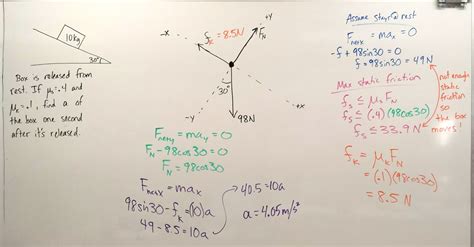 10kg
30°
Box is released from
rest. If μs=.4 and
μk=.1, find a of
the box one second
after it's released.
-x
+y
fk=8.5N
FN
30°
+x
98N
-y
Fnety=may=0
FN-98cos30=0
FN=98cos30
Fnetx=max
98sin30-fk=(10)a
49-8.5=10a
40.5=10a
a=4.05m/s²
Assume stays @ rest
Fnetx=max=0
-f+98sin30=0
f=98sin30=49N
Max static friction
fs≤μsFN
fs≤(.4)(98cos30)
fs≤33.9N
not enough
static
friction
so
the box
moves!
fk=μkFN
=(.1)(98cos30)
=8.5N